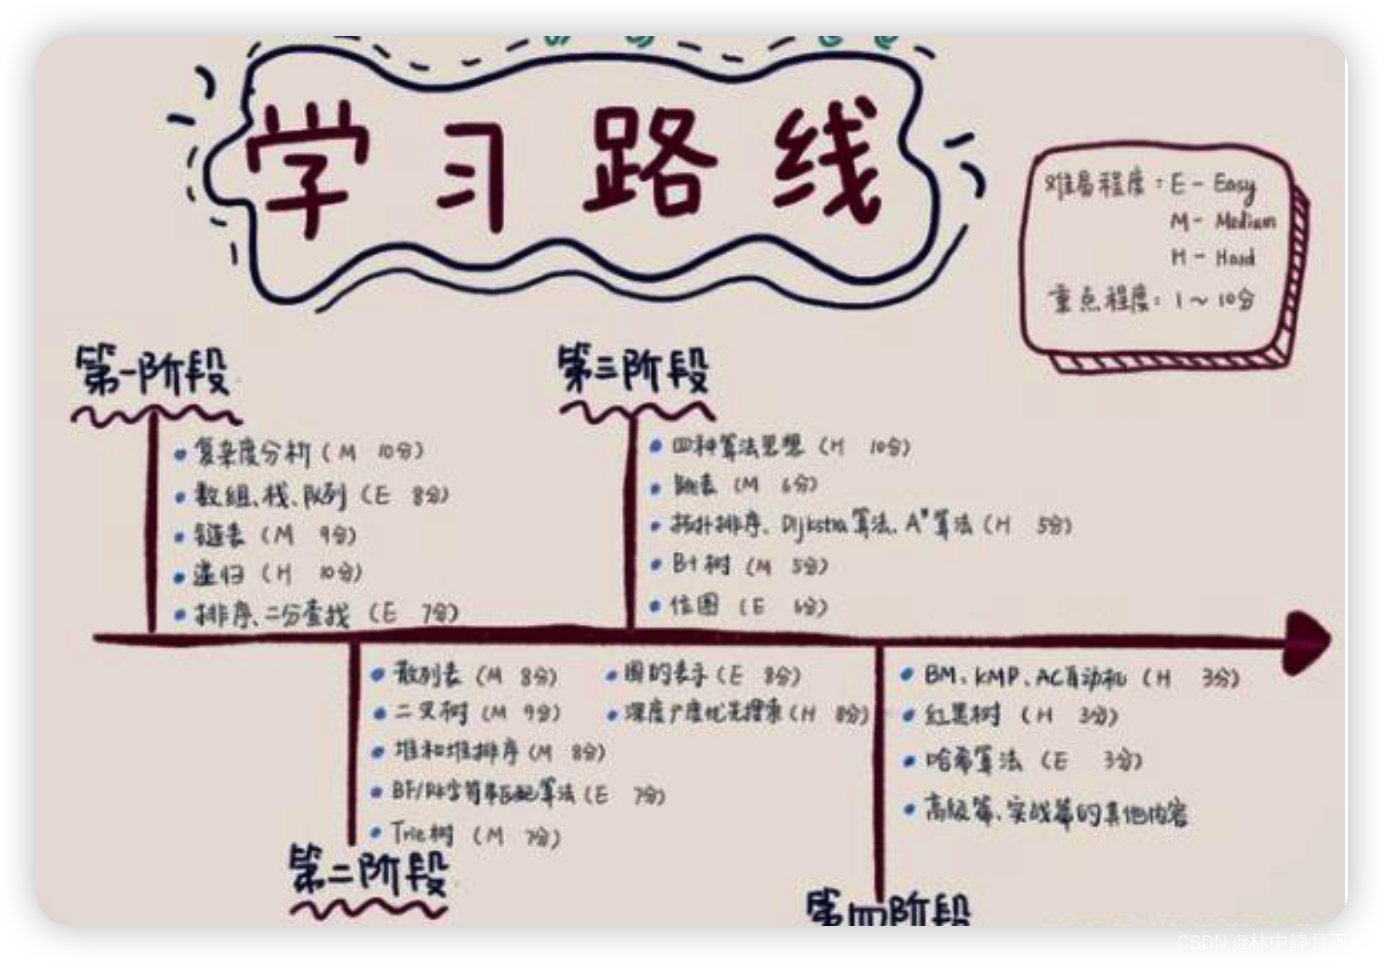 学习路线
难易程度：E - Easy
M - Medium
H - Hard
重点程度：1～10分
第一阶段
复杂度分析（M 10分）
数组、栈、队列（E 8分）
链表（M 9分）
递归（H 10分）
排序、二分查找（E 7分）
第三阶段
四种算法思想（H 10分）
跳表（M 6分）
拓扑排序、Dijkstra算法、A*算法（H 5分）
B+树（M 5分）
位图（E 6分）
散列表（M 8分）
二叉树（M 9分）
堆和堆排序（M 8分）
BF/RK字符串匹配算法（E 7分）
Trie树（M 7分）
图的表示（E 8分）
深度广度优先搜索（H 8分）
第二阶段
BM、KMP、AC自动机（H 3分）
红黑树（H 3分）
哈希算法（E 3分）
高级篇、实战篇的其他内容
第四阶段
CSDN @林中静月下